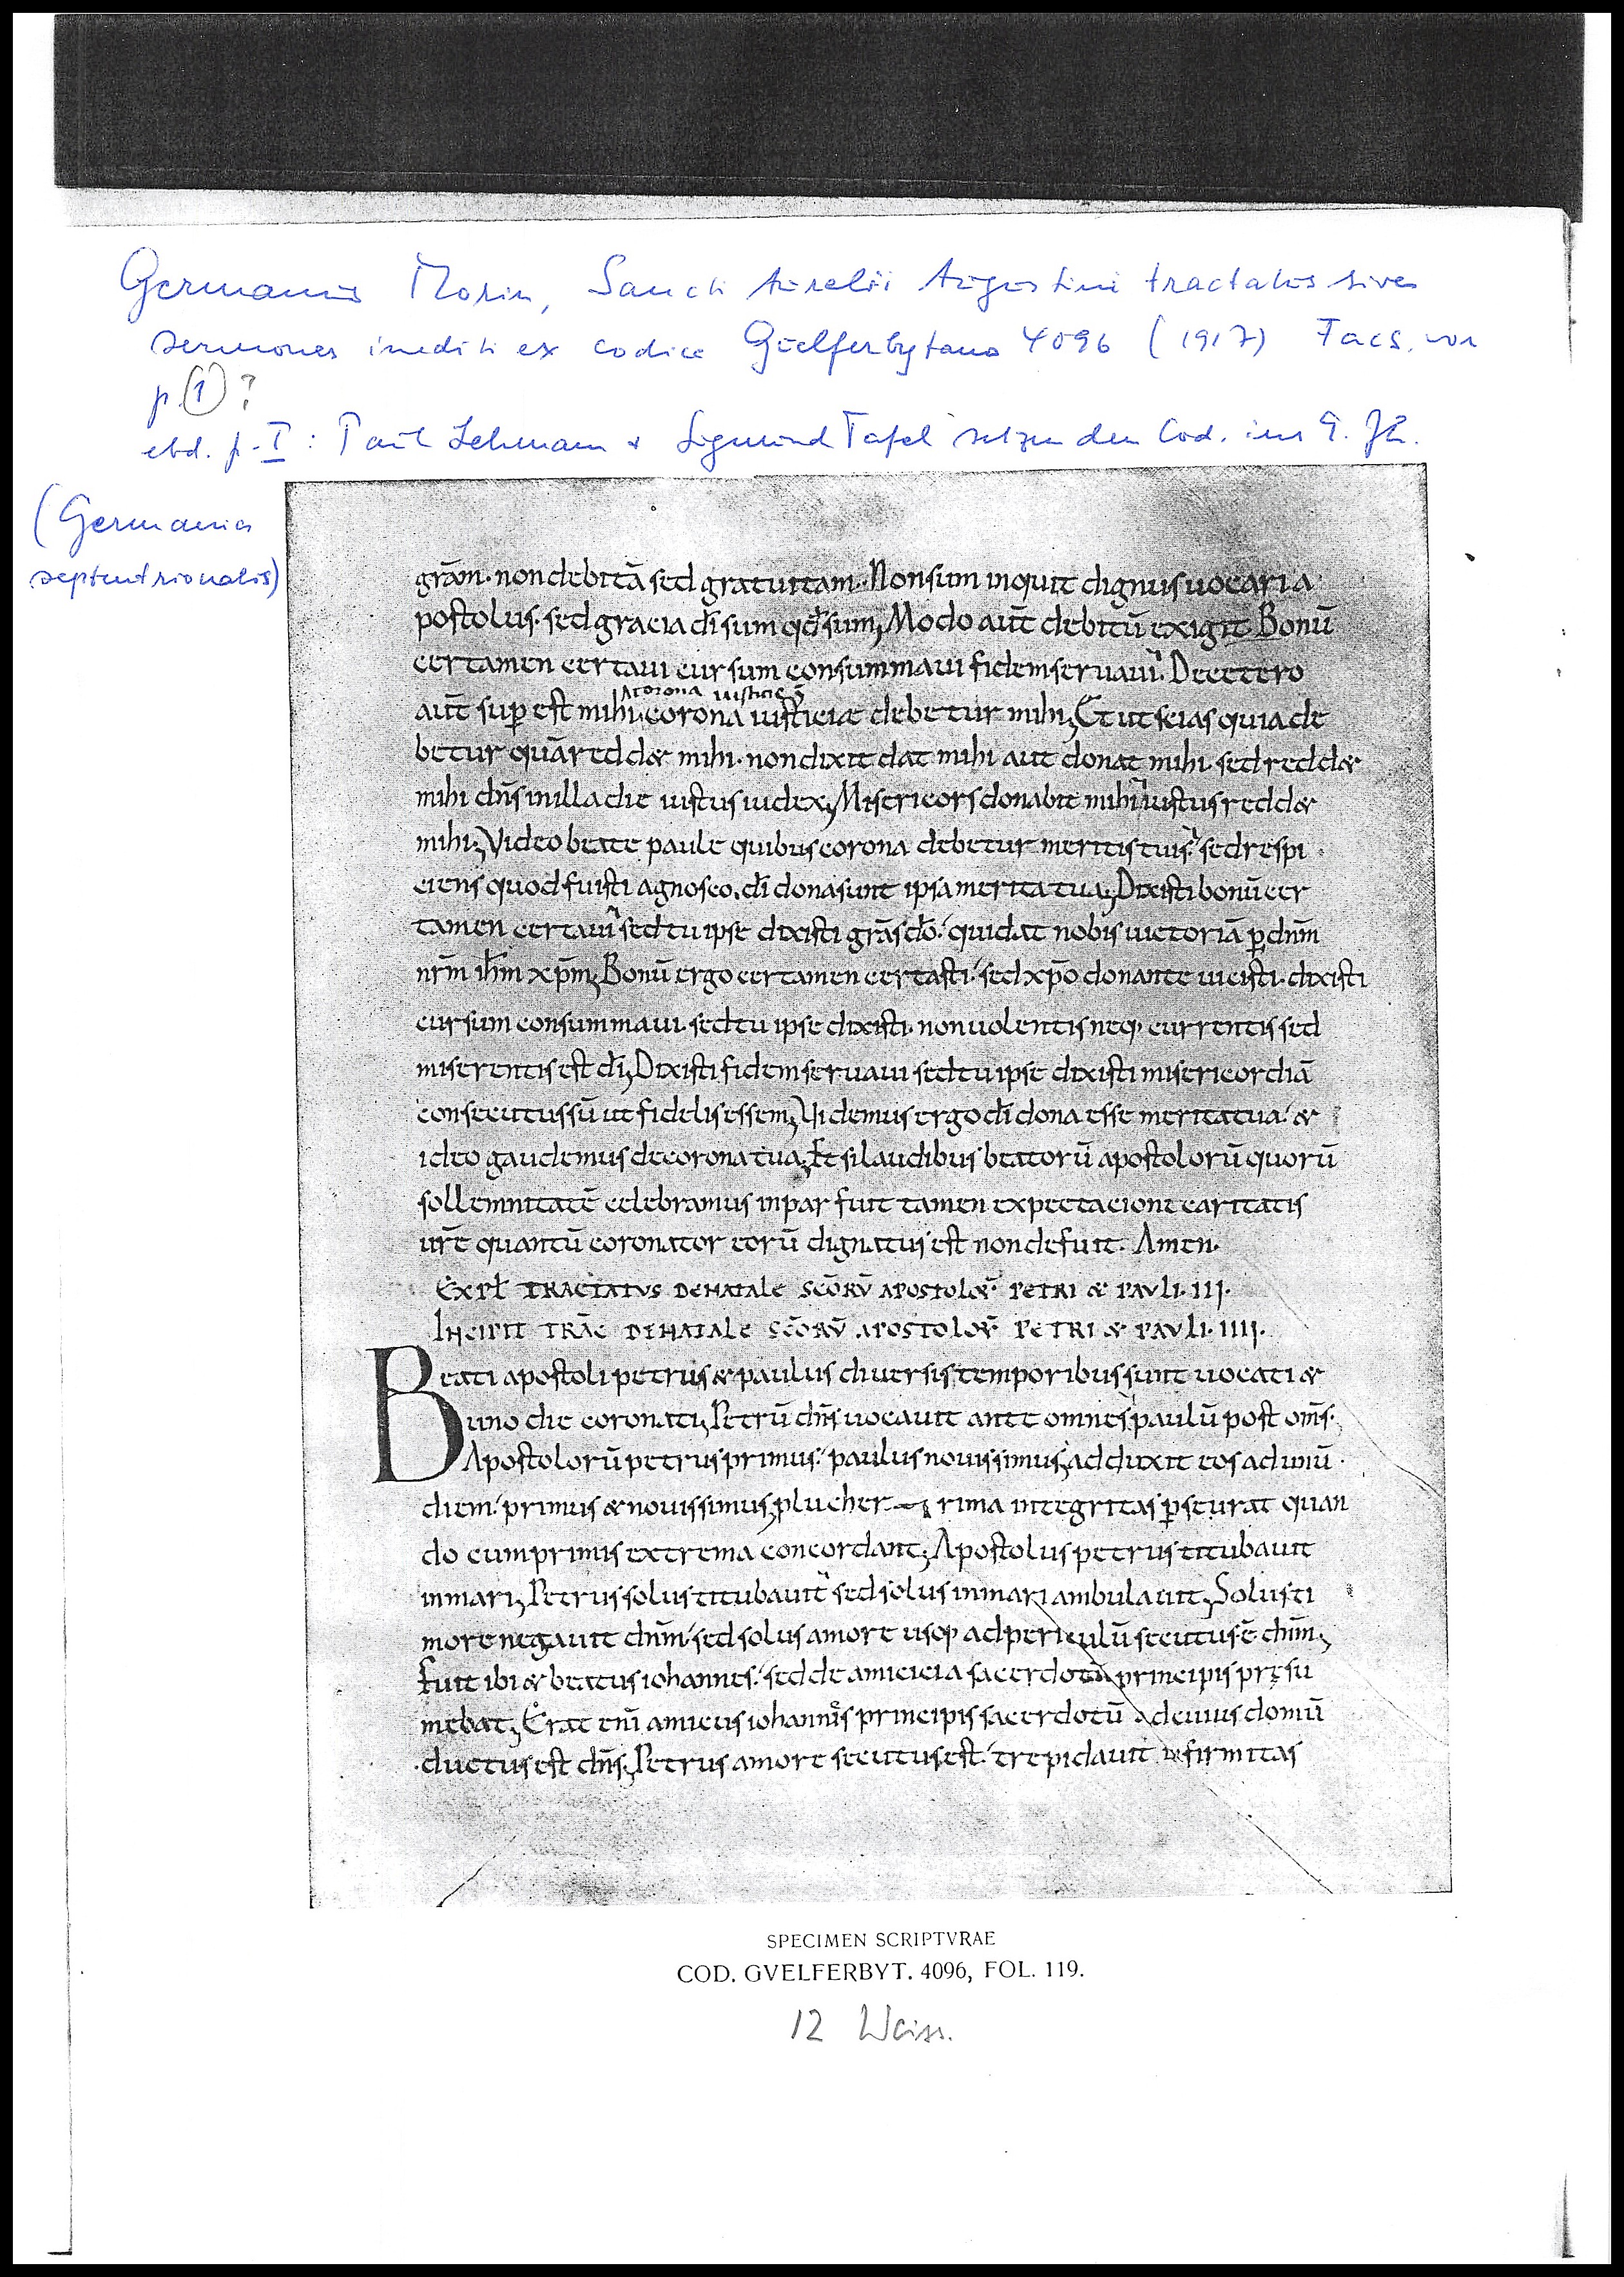 Germanus Morin, Sancti Aurelii Augustini tractatus sive
sermones inediti ex codice Guelferbytano 4096 (1917) Facs. vor
p. 1 ?
ebd. p. I : Paul Lehmann + Sigmund Tafel setzen den Cod. ins 9. Jh.
(Germania
septentrionalis)
grām· non debitā sed gratuitam· Non sum inquit dignus uocari a
postolus· sed gracia dī sum qd sum; Modo aūt debitū exigit Bonū
certamen certaui cursum consummaui fidem seruaui· De cetero
corona iusticie
aūt sup est mihi corona iusticiae debetur mihi; Et ut scias quia de
betur quā redd& mihi· non dixit dat mihi aut donat mihi· sed redd&
mihi dn̄s in illa die iustus iudex; Misericors donabit mihi iustus redd&
mihi; Video beate paule quibus corona debetur meritis tuis· sed respi
ciens quod fuisti agnosco· dī dona sunt ipsa merita tua; Dixisti bonū cer
tamen certaui sed tu ipse dixisti grās dō· qui dat nobis uictoriā p dnm̄
nrm̄ ihm̄ xpm̄; Bonū ergo certamen certasti· sed xpō donante uicisti· dixisti
cursum consummaui· sed tu ipse dixisti· non uolentis neq· currentis sed
miserentis est dī; Dixisti fidem seruaui sed tu ipse dixisti misericordiā
consecutus sū ut fidelis essem; Videmus ergo dī dona esse merita tua· &
ideo gaudemus de corona tua; Et si laudibus beatorū apostolorū quorū
sollemnitatē celebramus inpar fuit tamen expectacione caritatis
urē quantū coronator eorū dignatus est non defuit· Amen·
Expl TRACTATVS DE NATALE SCŌRV̄ APOSTOLOR̄ PETRI & PAVLI· III·
INCIPIT TRĀC DE NATALE SCŌRV̄ APOSTOLOR̄ PETRI & PAVLI· IIII·
Beati apostoli petrus & paulus diuersis temporibus sunt uocati &
uno die coronati; Petrū dn̄s uocauit ante omnes paulū post om̄s·
Apostolorū petrus primus· paulus nouissimus; adduxit eos ad unū·
diem· primus & nouissimus; plucher rima integritas pscurat quan
do cum primis extrema concordant; Apostolus petrus titubauit
in mari; Petrus solus titubauit sed solus in mari ambulauit; Solus ti
more negauit dnm̄· sed solus amore usq· ad periculū secutus ē dnm̄;
Fuit ibi & beatus iohannes· sed de amicicia sacerdotū principis pręsu
mebat; Erat enī amicus iohannis principis sacerdotū ad cuius domū
ductus est dn̄s; Petrus amore secutus est· trepidauit infirmitas
SPECIMEN SCRIPTVRAE
COD. GVELFERBYT. 4096, FOL. 119.
12 Weiss.